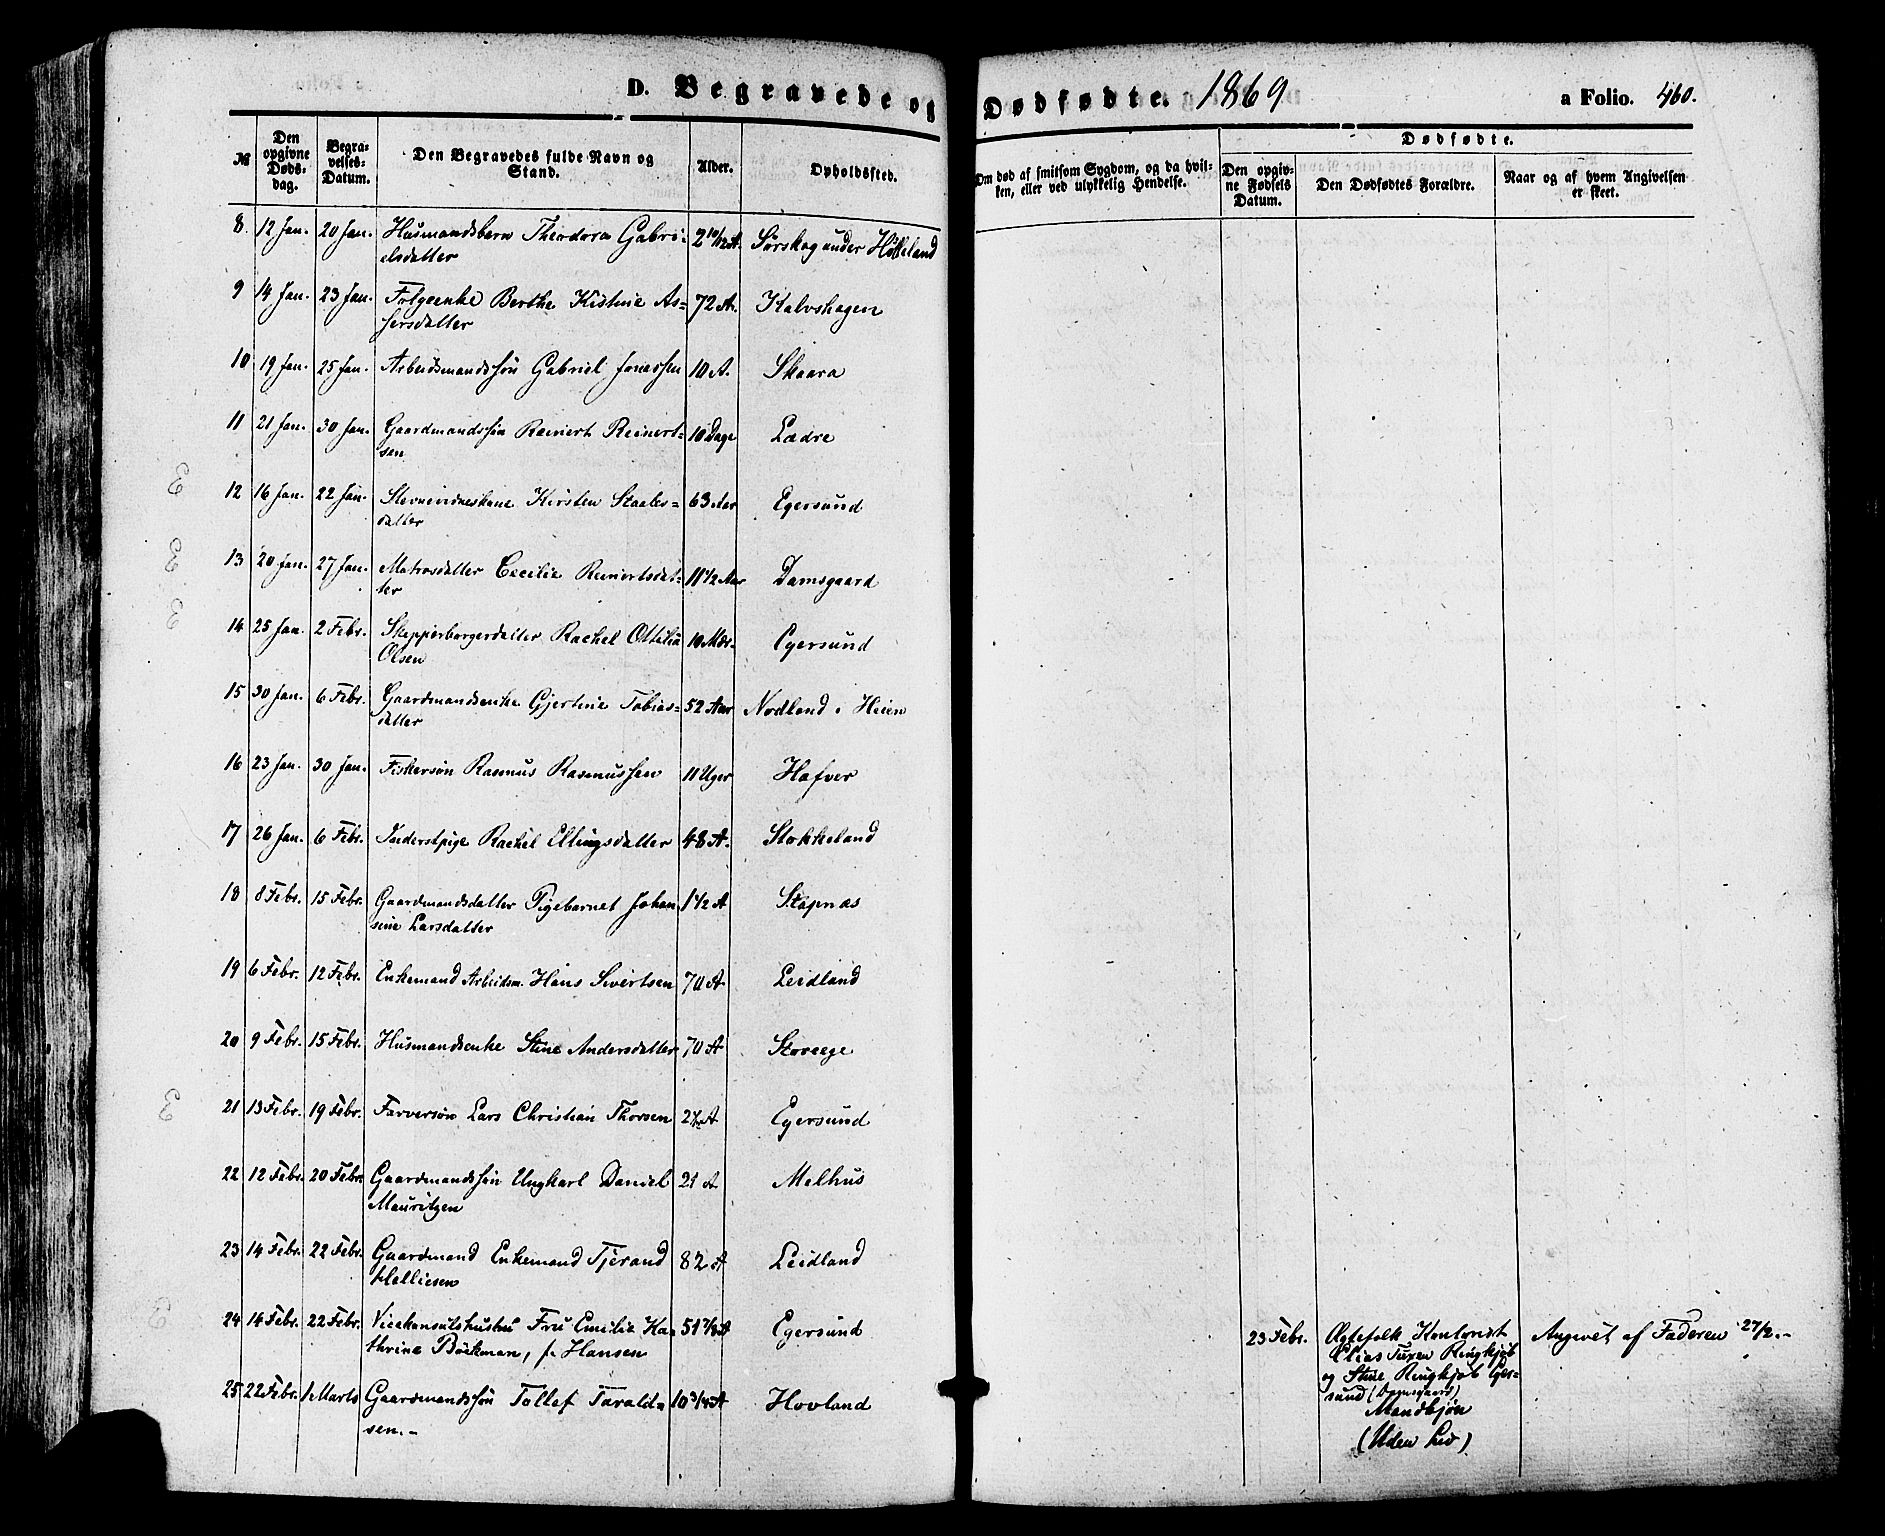 D. Begravede og Dødfødte. 1869 a Folio. 460.
№
Den opgivne Dødsdag.
Begravelses-Datum.
Den Begravedes fulde Navn og Stand.
Alder.
Opholdssted.
Om død af smitsom Sygdom, og da hvilken, eller ved ulykkelig Hendelse.
Dødfødte.
Den opgivne Fødsels Datum.
Den Dødfødtes Forældre.
Naar og af hvem Angivelsen er skeet.
8. 12 Jan. 20 Jan. Husmandsbarn Theodora Gabri- 2 10/12 A. Sørskog under Hølleland
elsdatter
9 14 Jan. 23 Jan. Følgeenke Berthe Kistine As- 72 A. Kalvshagen
sersdatter
10 19 Jan. 25 Jan. Arbeidsmandssøn Gabriel Jonassen 10 A. Skaara
11 21 Jan. 30 Jan. Gaardmandssøn Reinert Reinert- 10 Dage Lædre
sen
12 16 Jan. 22 Jan. Stevnevidneskone Kirsten Staales- 63 Aar Egersund
datter
13 20 Jan. 27 Jan. Matrosdatter Cecilie Reinertsdat- 11 1/2 Aar Damsgaard
ter
14 25 Jan. 2 Febr. Skipperborgerdatter Rachel Ottilia 10 Mdr. Egersund
Olsen
15 30 Jan. 6 Febr. Gaardmandsenke Gjertine Tobias- 52 Aar Nodland i Heien
datter
16 23 Jan. 30 Jan. Fiskersøn Rasmus Rasmussen 11 Uger Hafver
17 26 Jan. 6 Febr. Inderstpige Rachel Ellingsdatter 48 A. Stokkeland
18 8 Febr. 15 Febr. Gaardmandsdatter Pigebarnet Johan 1 1/2 A Stapnæs
sine Larsdatter
19 6 Febr. 12 Febr. Enkemand Arbeidsm. Hans Sivertsen 70 A Leidland
20 9 Febr. 15 Febr. Husmandsenke Stine Andersdatter 70 A Storeege
21 13 Febr. 19 Febr. Farversøn Lars Christian Thorsen A Egersund
22 12 Febr. 20 Febr. Gaardmandssøn Ungkarl Daniel 21 A Melhus
Mauritzen
23 14 Febr. 22 Febr. Gaardmand Enkemand Tjerand 82 A Leidland
Halliesen
24 14 Febr. 22 Febr. Vicekonsulshustru Fru Emilie Ka- 51 A Egersund
thrine Böckman, f. Hansen
25 22 Febr. 1. Marts Gaardmandssøn Tollef Tarald- 10 3/4 A Hovland
sen.-
23 Febr. Ægtefolk Kontorist Angivet af Faderen 27/2.-
Elias Tuxen Ringkjøb
og Stine Ringkjøb Eger-
sund (Damsgaard)
Mandkjøn
(Uden Liv)